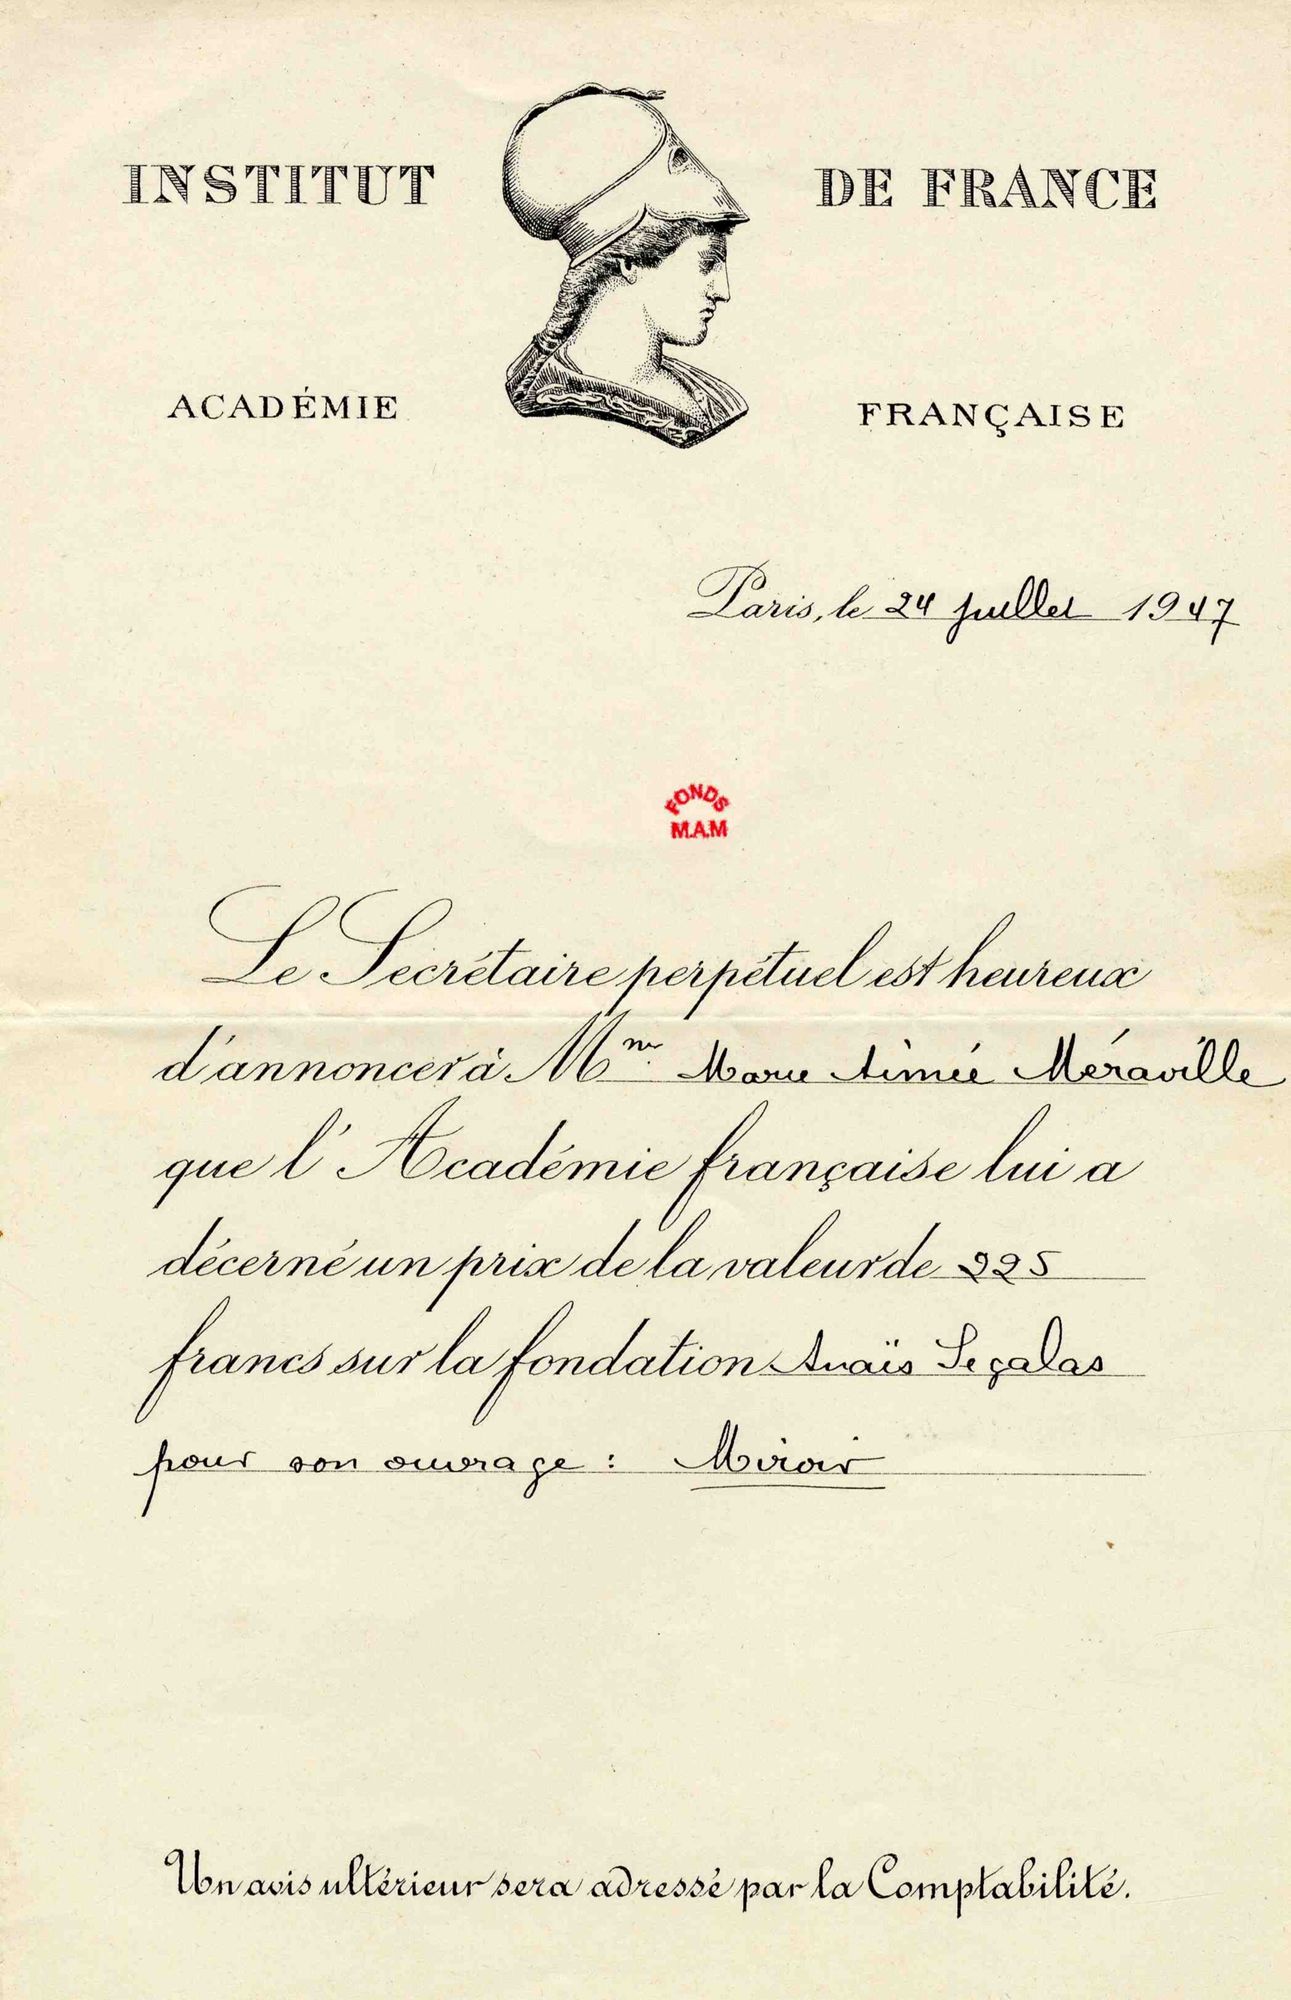 INSTITUT DE FRANCE
ACADÉMIE FRANÇAISE
Paris, le 24 juillet 1947
FONDS
M.A.M
Le Secrétaire perpétuel est heureux
d'annoncer à Mme Marie Aimée Méraville
que l'Académie française lui a
décerné un prix de la valeur de 225
francs sur la fondation Anaïs Segalas
pour son ouvrage : Miroir
Un avis ultérieur sera adressé par la Comptabilité.